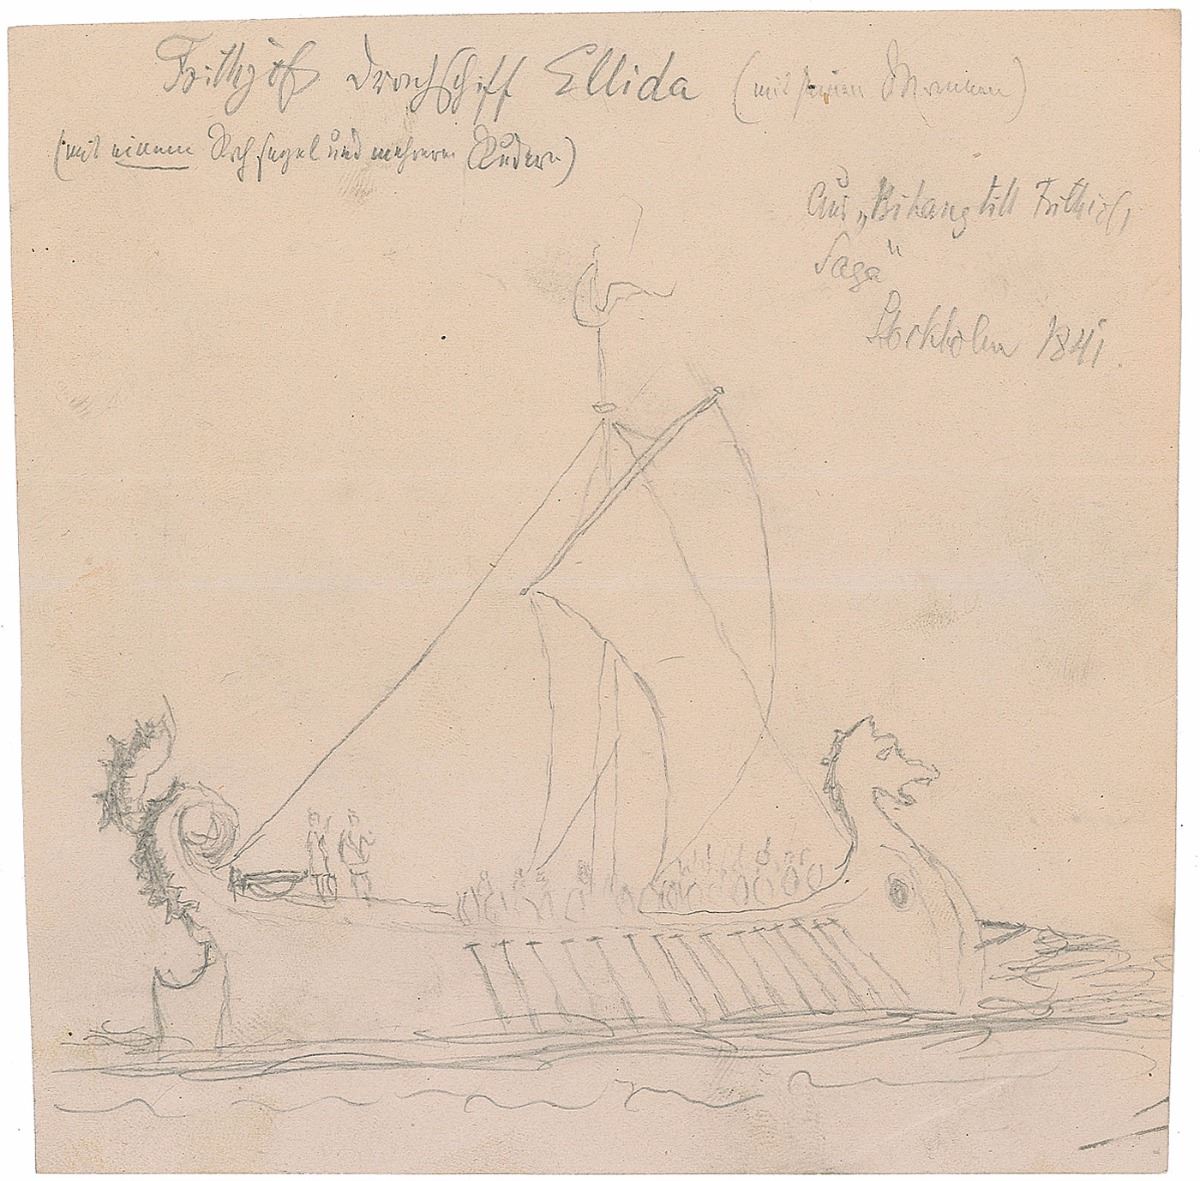 Frithjof Drachschiff Ellida (mit seinen Mannen)
(mit einem Segel und mehreren Rudern)
Aus „Bihang till Frithiofs
Saga"
Stockholm 1841.